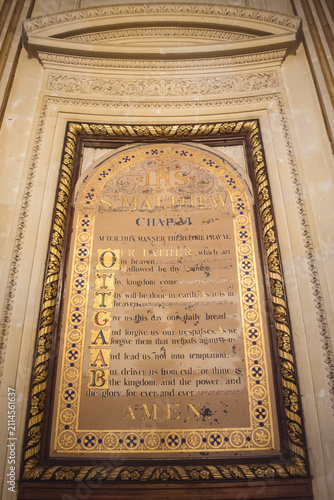 IHS
S. MATTHEW
CHAP. VI
AFTER THIS MANNER THEREFORE PRAY YE
OUR FATHER, which art
in heaven,
Hallowed be thy Name
Thy kingdom come
Thy will be done in earth, As it is in
heaven
Give us this day our daily bread.
And forgive us our trespasses As we
forgive them that trespass against us
And lead us not into temptation
But deliver us from evil For thine is
the kingdom, and the power, and
the glory, for ever and ever
AMEN
Adobe Stock | #2114561637